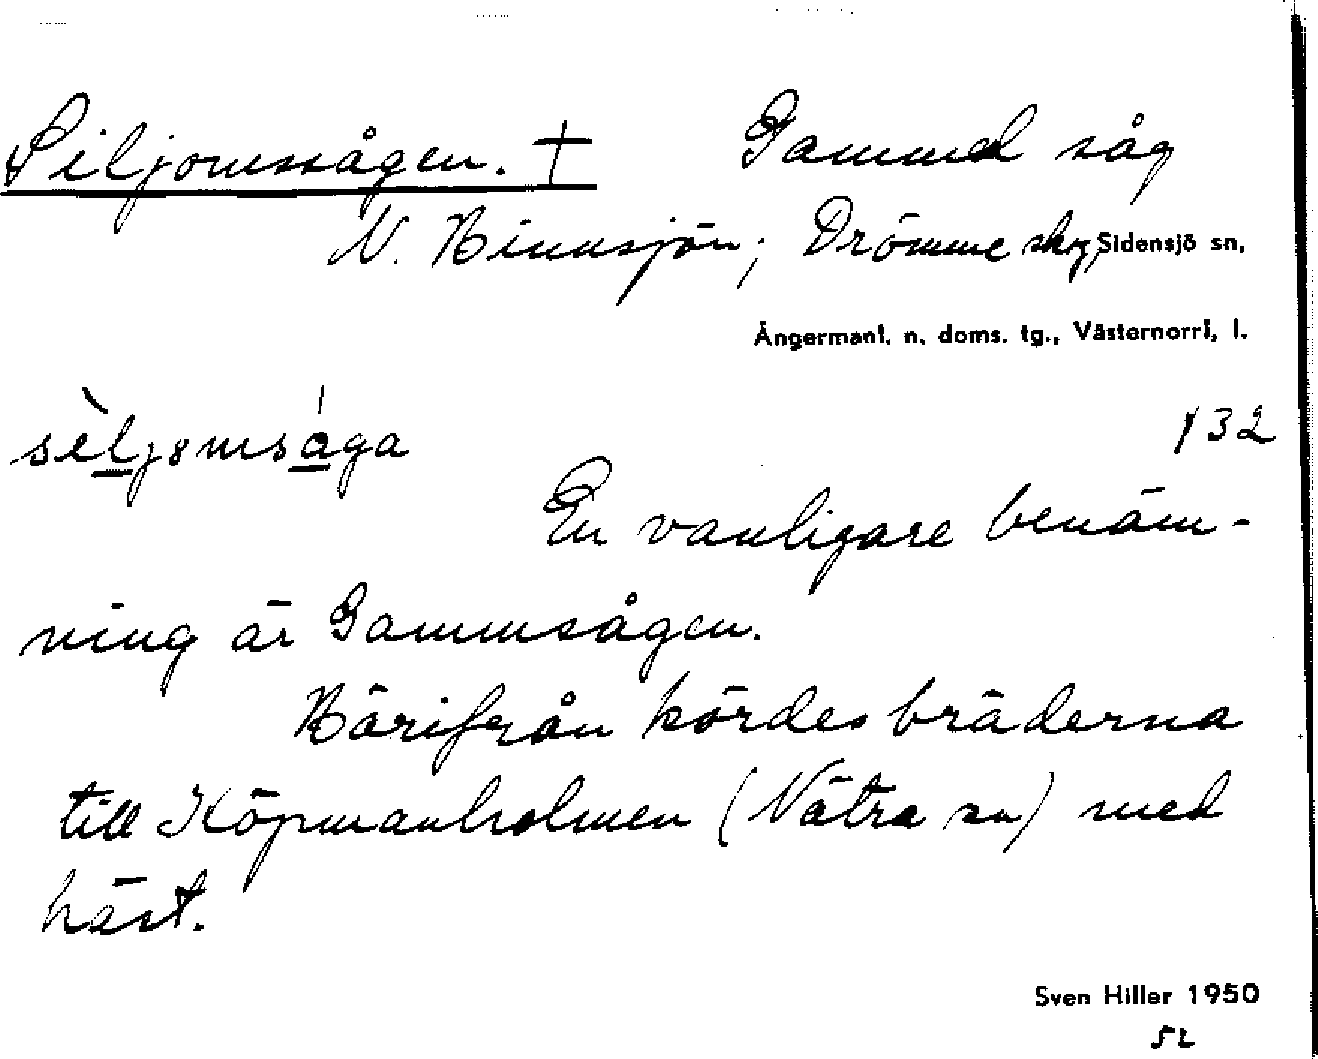 Siljomssågen. † Gammal såg
N. Hinnsjön; Drömme skog, Sidensjö sn,
Ångermanl. n. doms. tg., Västernorrl, l.
sèljomsága 132
En vanligare benäm-
ning är Gammsågen.
Härifrån kördes bräderna
till Köpmanholmen (Nätra sn) med
häst.
Sven Hiller 1950
52